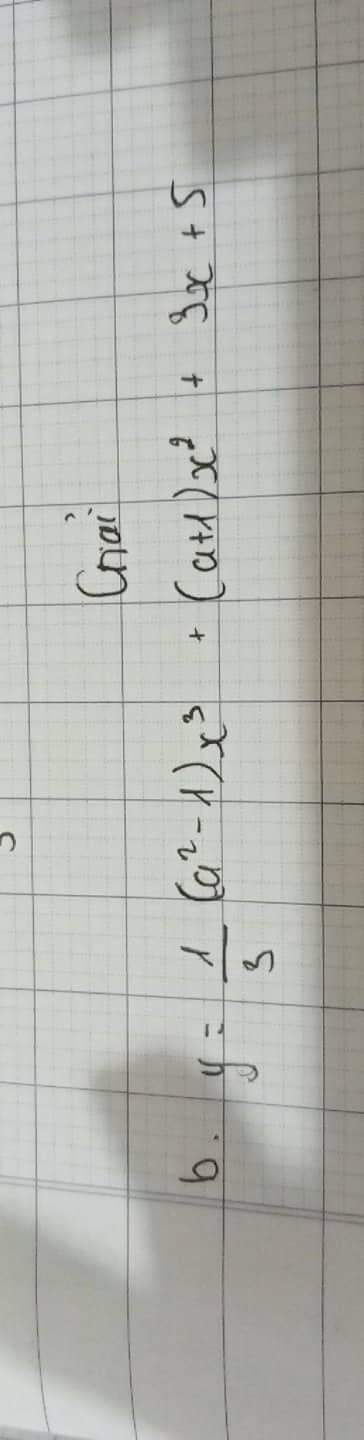 Giải
b. y = \frac{1}{3} (a² - 1) x³ + (a+1) x² + 3x + 5